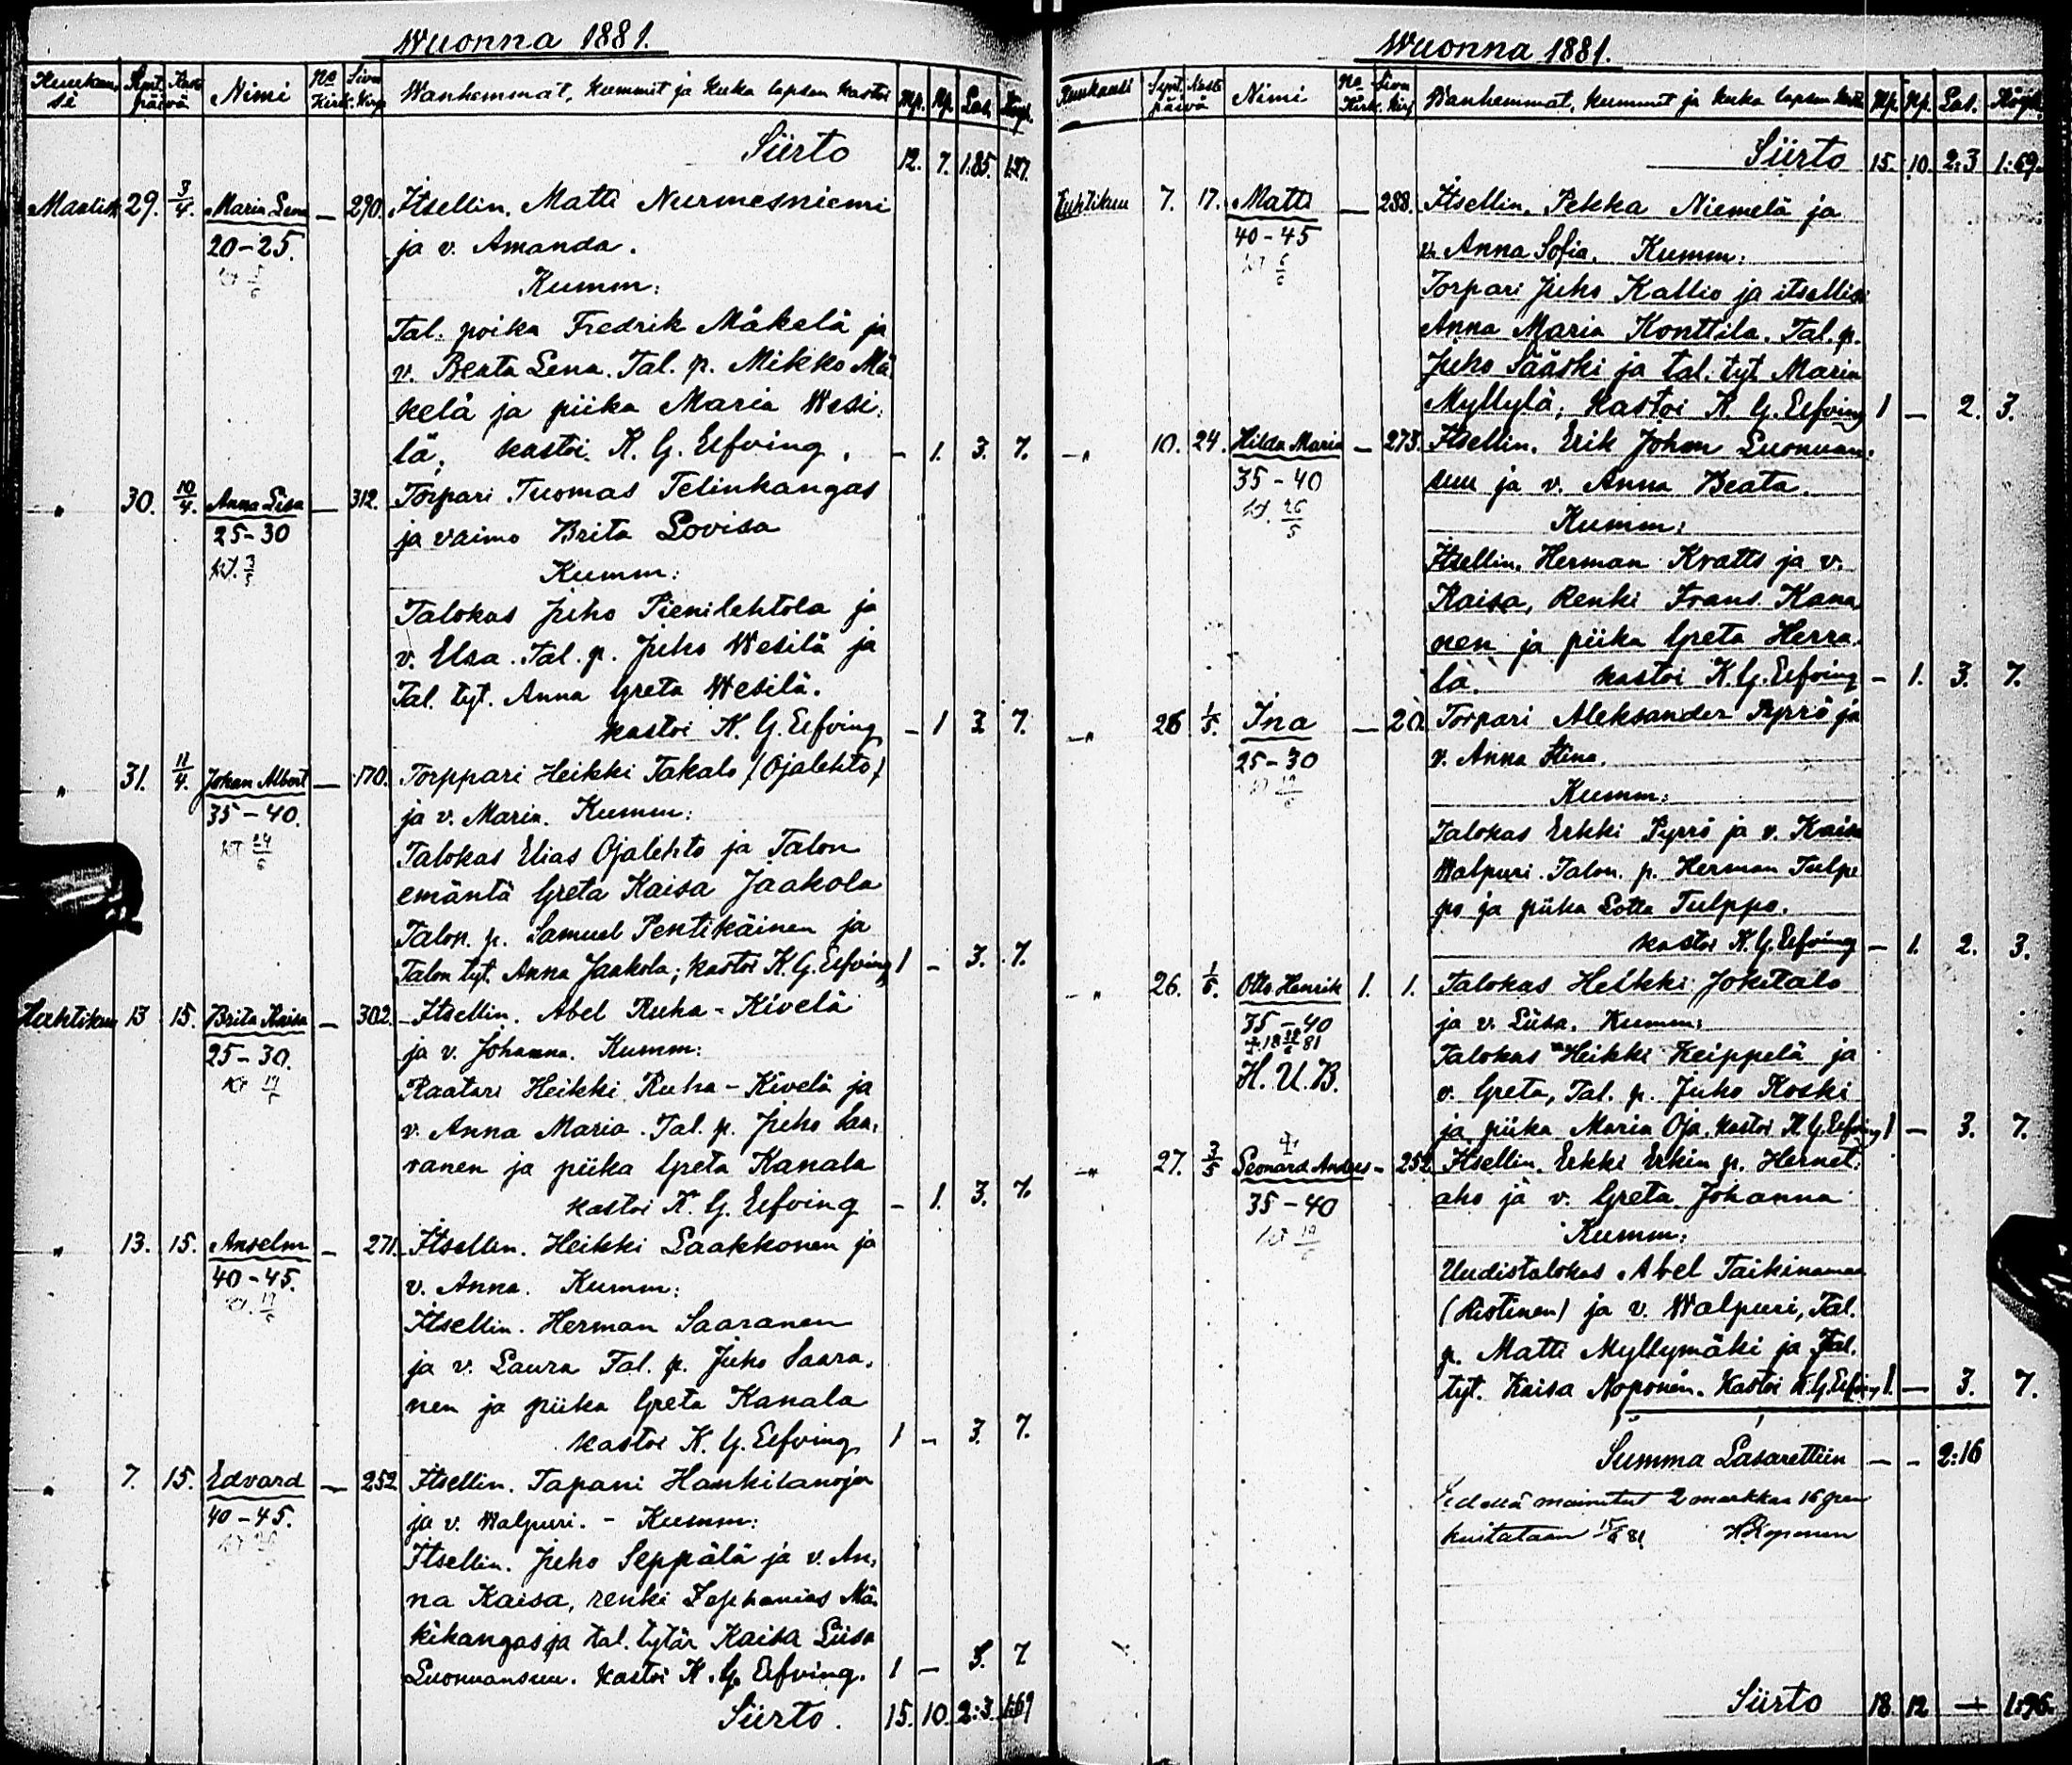 Wuonna 1881.
Kuukausi Synt. Kast. päivä Nimi No Kirk. Sivu Kirj. Wanhemmat, kummit ja kuka lapsen kastoi Mp. Np. Las. Köyh.
Siirto 12. 7. 1.85. 1:27.
Maalisk 29. 3/4. Maria Lena — 290. Itsellin. Matti Nurmesniemi
20-25. ja v. Amanda.
Kumm:
Tal. poika Fredrik Mäkelä ja
v. Beata Lena. Tal. p. Mikko Mä-
kelä ja piika Maria Wesi-
lä; kastoi K. G. Elfving. — 1. 3. 7.
" 30. 10/4. Anna Lisa — 312. Torpari Tuomas Telinkangas
25-30 ja vaimo Brita Lovisa
kt. 3/5 Kumm:
Talokas Juho Pienilehtola ja
v. Elsa. Tal. p. Juho Wesilä ja
Tal. tyt. Anna Greta Wesilä.
kastoi K. G. Elfving — 1 3 7.
" 31. 11/4. Johan Albert — 170. Torppari Heikki Takalo (Ojalehto)
35-40. ja v. Maria. Kumm:
Talokas Elias Ojalehto ja Talon
emäntä Greta Kaisa Jaakola
Talon. p. Samuel Pentikäinen ja
Talon tyt. Anna Jaakola; kastoi K. G. Elfving 1 — 3. 7.
Huhtikuu 13 15. Brita Kaisa — 302. Itsellin. Abel Ruha-Kivelä
25-30. ja v. Johanna. Kumm:
Raatari Heikki Ruha-Kivelä ja
v. Anna Maria. Tal. p. Juho Saa-
ranen ja piika Greta Kanala
kastoi K. G. Elfving — 1. 3. 7.
" 13. 15. Anselm — 271. Itsellin. Heikki Laakkonen ja
40-45. v. Anna. Kumm:
Itsellin. Herman Saaranen
ja v. Laura Tal. p. Juho Saara-
nen ja piika Greta Kanala
kastoi K. G. Elfving 1 — 3. 7.
" 7. 15. Edvard — 252 Itsellin. Tapani Hankilanoja
40-45. ja v. Walpuri. - Kumm:
Itsellin. Juho Seppälä ja v. An-
na Kaisa, renki Zephanias Mä-
kikangas ja tal. tytär Kaisa Liisa
Luonuansuu. kastoi K. G. Elfving. 1 — 3. 7
Siirto. 15. 10. 2:3. 1:69
Wuonna 1881.
Kuukausi Synt. Kast. päivä Nimi No Kirk. Sivu Kirj. Wanhemmat, kummit ja kuka lapsen kastoi Mp. Np. Las. Köyh.
Siirto 15. 10. 2:3 1:69.
Huhtikuu 7. 17. Matti — 288. Itsellin. Pekka Niemelä ja
40-45 v. Anna Sofia. Kumm:
Torpari Juho Kallio ja itsellisn
Anna Maria Konttila. Tal. p.
Juho Sääski ja tal. tyt. Maria
Myllylä; kastoi K. G. Elfving 1 — 2. 3.
" 10. 24. Hilda Maria — 273. Itsellin. Erik Johan Luonuan-
35-40 suu ja v. Anna Beata.
kt. 26/5 Kumm:
Itsellin. Herman Kratts ja v.
Kaisa, Renki Frans Kana-
nen ja piika Greta Herra-
la. kastoi K. G. Elfving — 1. 3. 7.
" 26 1/5. Ina — 20. Torpari Aleksander Pyrrö ja
25-30 v. Anna Stina.
Kumm:
Talokas Erkki Pyrrö ja v. Kaisa
Walpuri. Talon. p. Herman Tulp-
po ja piika Lotta Tulppo.
kastoi K. G. Elfving — 1. 2. 3.
" 26. 1/5. Otto Henrik 1. 1. Talokas Heikki Jokitalo
35-40 ja v. Liisa. Kumm:
Talokas Heikki Keippelä ja
H. U. B. v. Greta, Tal. p. Juho Koski
ja piika Maria Oja. kastoi K. G. Elfving 1 — 3. 7.
" 27. 3/5 Leonard Anders — 252 Itsellin. Erkki Erkin p. Hernet-
35-40 aho ja v. Greta Johanna
Kumm:
Uudistalokas Abel Taikinamaa
(Ristinen) ja v. Walpuri, Tal.
p. Matti Myllymäki ja Tal.
tyt. Kaisa Noponen. Kastoi K. G. Elfving 1. — 3. 7.
Summa Lasarettiin — — 2:16
Edellä mainitut 2 markkaa 16 pen
kuitataan 15/6 81
Siirto 18. 12 — 1:96.